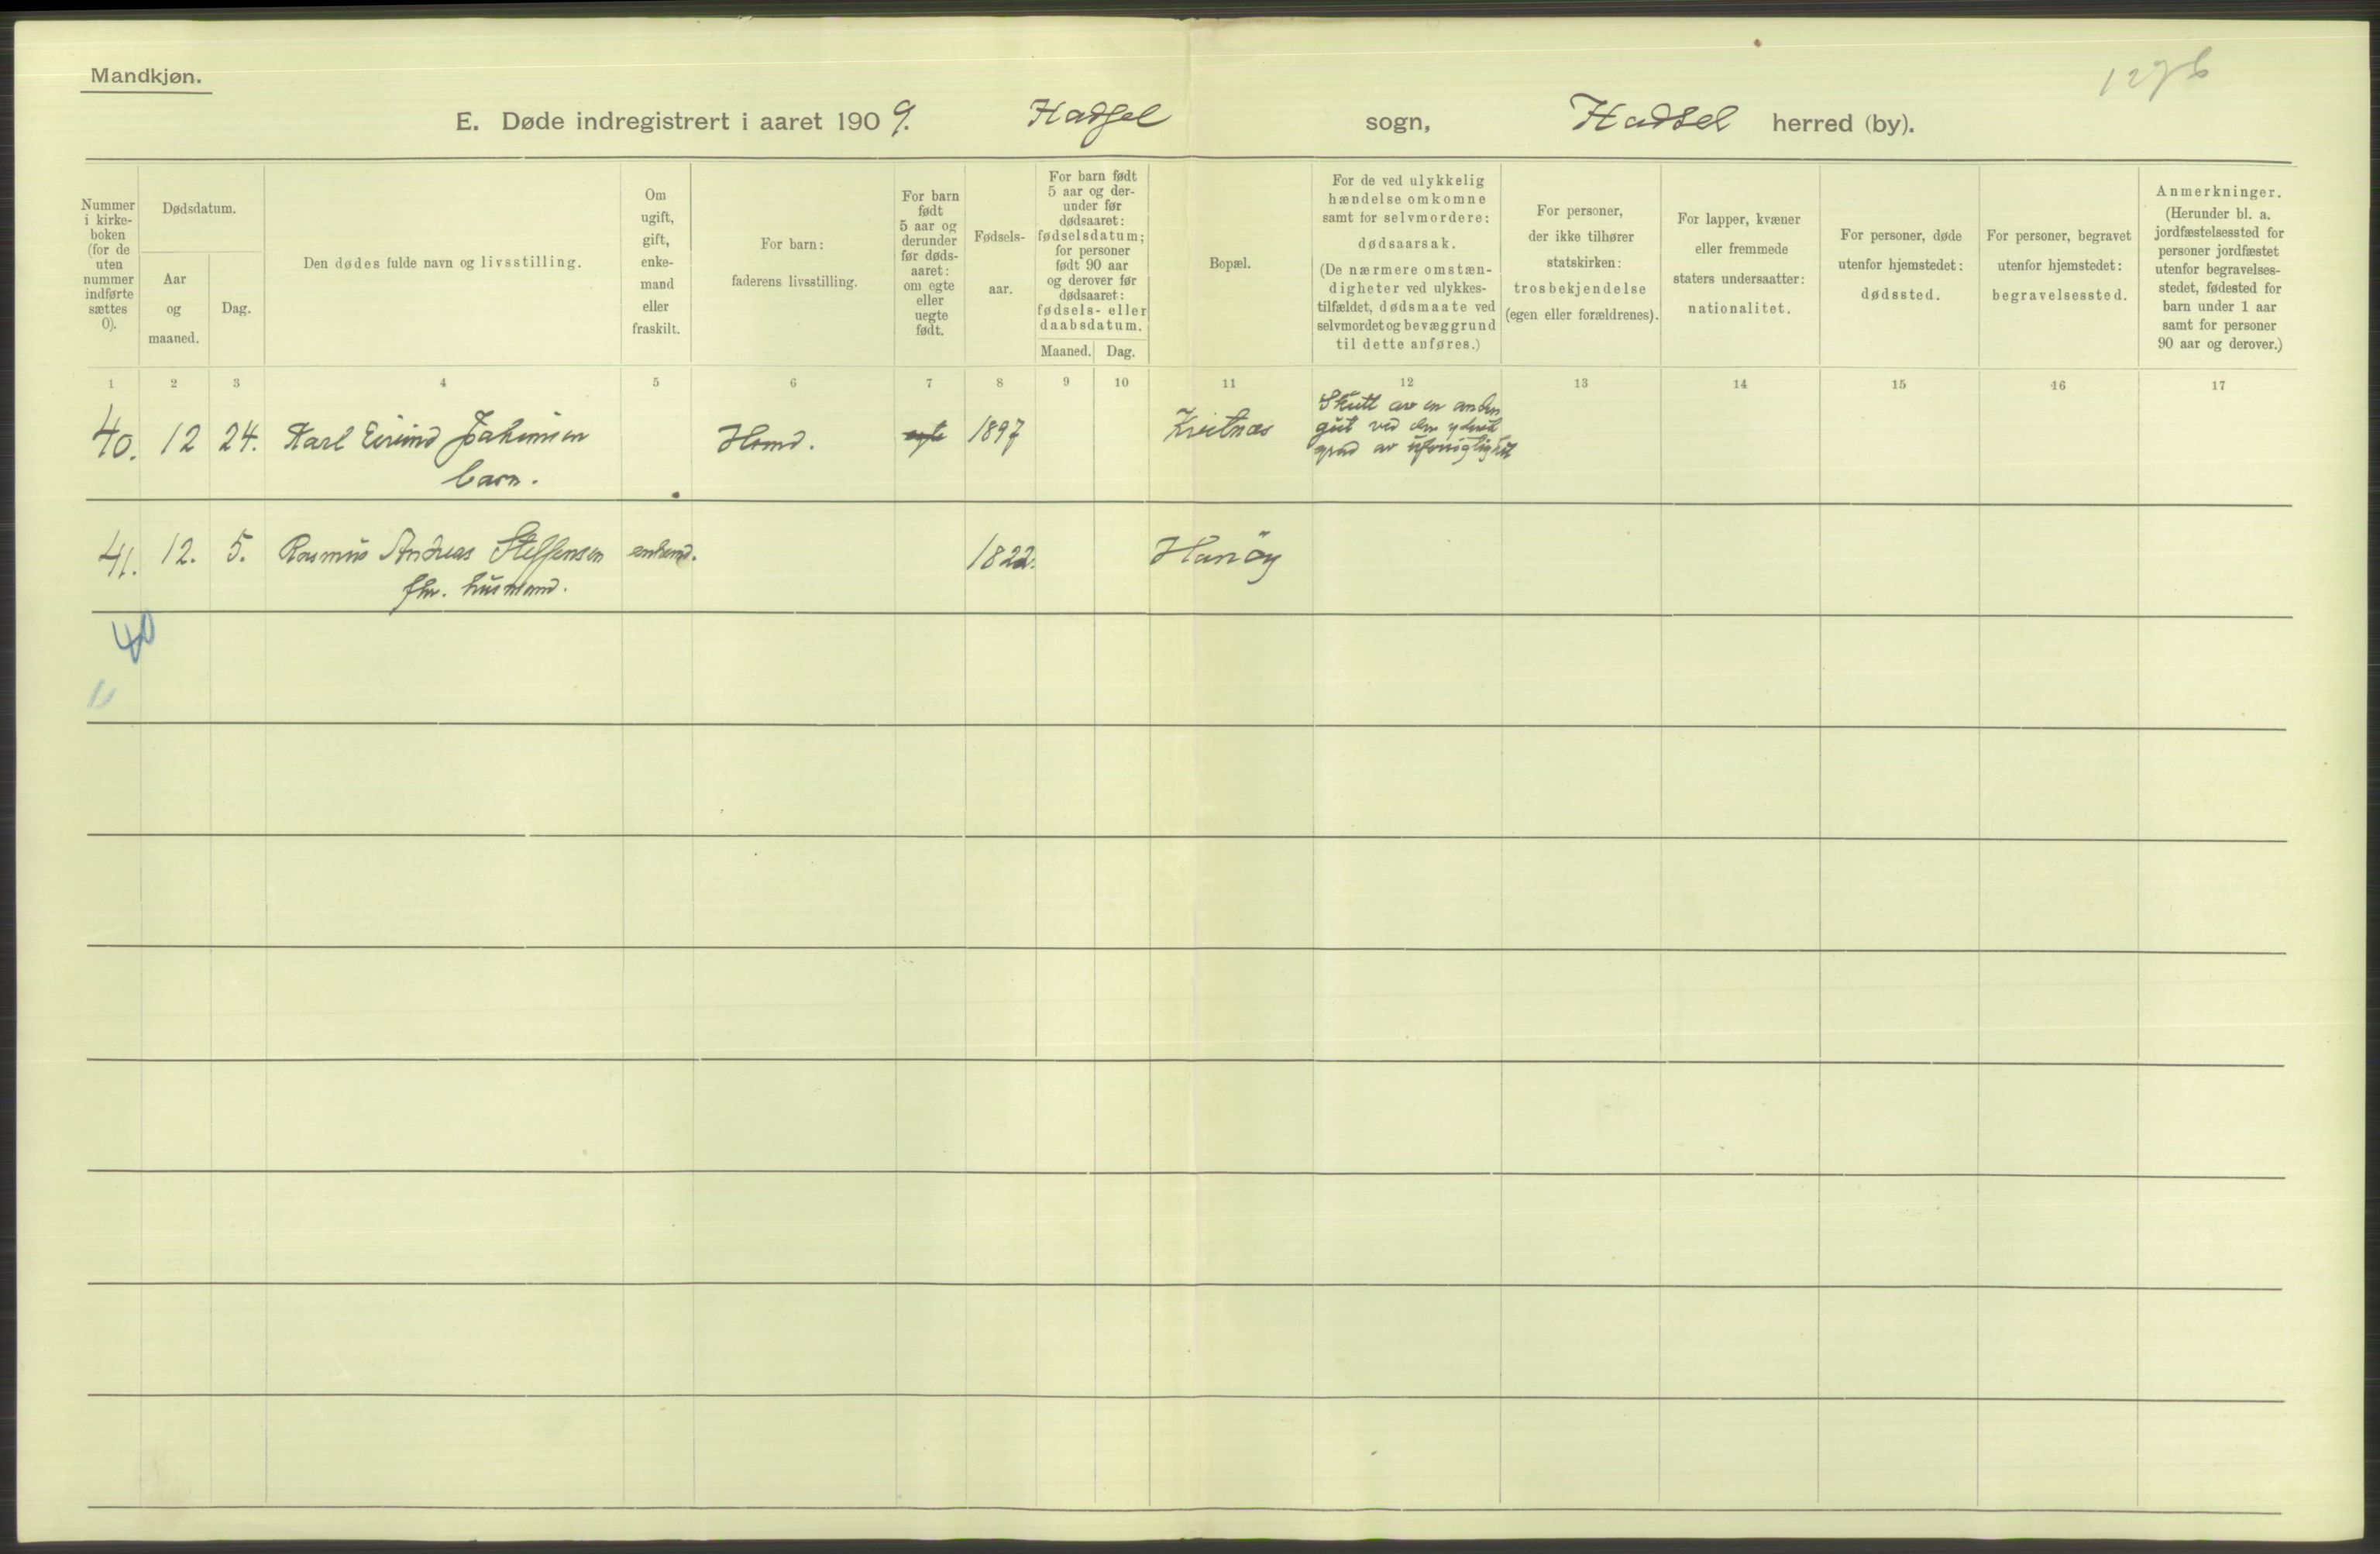 Mandkjøn.
127b
E. Døde indregistrert i aaret 1909. Hadsel sogn, Hadsel herred (by).
Nummer
i kirke-
boken
(for de
uten
nummer
indførte
sættes
0).
Dødsdatum.
Aar
og
maaned.
Dag.
Den dødes fulde navn og livsstilling.
Om
ugift,
gift,
enke-
mand
eller
fraskilt.
For barn:
faderens livsstilling.
For barn
født
5 aar og
derunder
før døds-
aaret:
om egte
eller
uegte
født.
Fødsels-
aar.
For barn født
5 aar og der-
under før
dødsaaret:
fødselsdatum;
for personer
født 90 aar
og derover før
dødsaaret:
fødsels- eller
daabsdatum.
Maaned. Dag.
Bopæl.
For de ved ulykkelig
hændelse omkomne
samt for selvmordere:
dødsaarsak.
(De nærmere omstæn-
digheter ved ulykkes-
tilfældet, dødsmaate ved
selvmordet og bevæggrund
til dette anføres.)
For personer,
der ikke tilhører
statskirken:
trosbekjendelse
(egen eller forældrenes).
For lapper, kvæner
eller fremmede
staters undersaatter:
nationalitet.
For personer, døde
utenfor hjemstedet:
dødssted.
For personer, begravet
utenfor hjemstedet:
begravelsessted.
Anmerkninger.
(Herunder bl. a.
jordfæstelsessted for
personer jordfæstet
utenfor begravelses-
stedet, fødested for
barn under 1 aar
samt for personer
90 aar og derover.)
1 2 3 4 5 6 7 8 9 10 11 12 13 14 15 16 17
40. 12 24. Karl Eivind Joakimsen Hsmd. egte 1897 Kvitnæs
barn.
Skutt av en anden
gut ved den yderste
grad av uforsigtighet
41. 12. 5. Rasmus Andreas Steffensen enkemd. 1822. Hanöy
fhv. husmand.
40